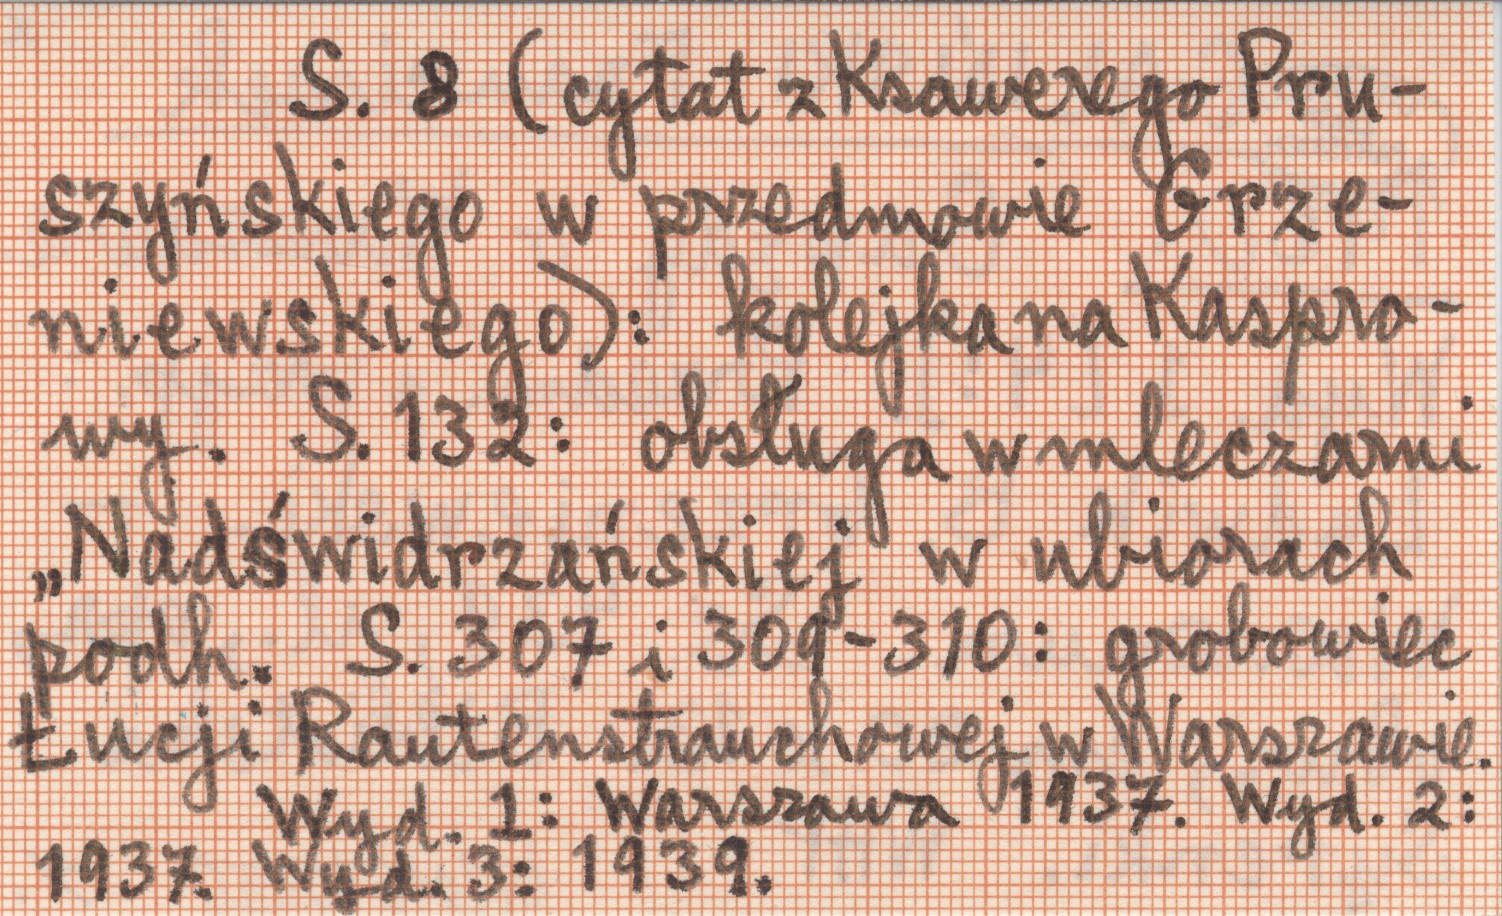 S. 8 (cytat z Ksawerego Pru-
szyńskiego w przedmowie Grze-
niewskiego): kolejka na Kaspro-
wy. S. 132: obsługa w mleczarni
„Nadświdrzańskiej w ubiorach
podh. S. 307 i 309-310: grobowiec
Łucji Rautenstrauchowej w Warszawie.
Wyd. 1: Warszawa 1937. Wyd. 2:
1937. Wyd. 3: 1939.